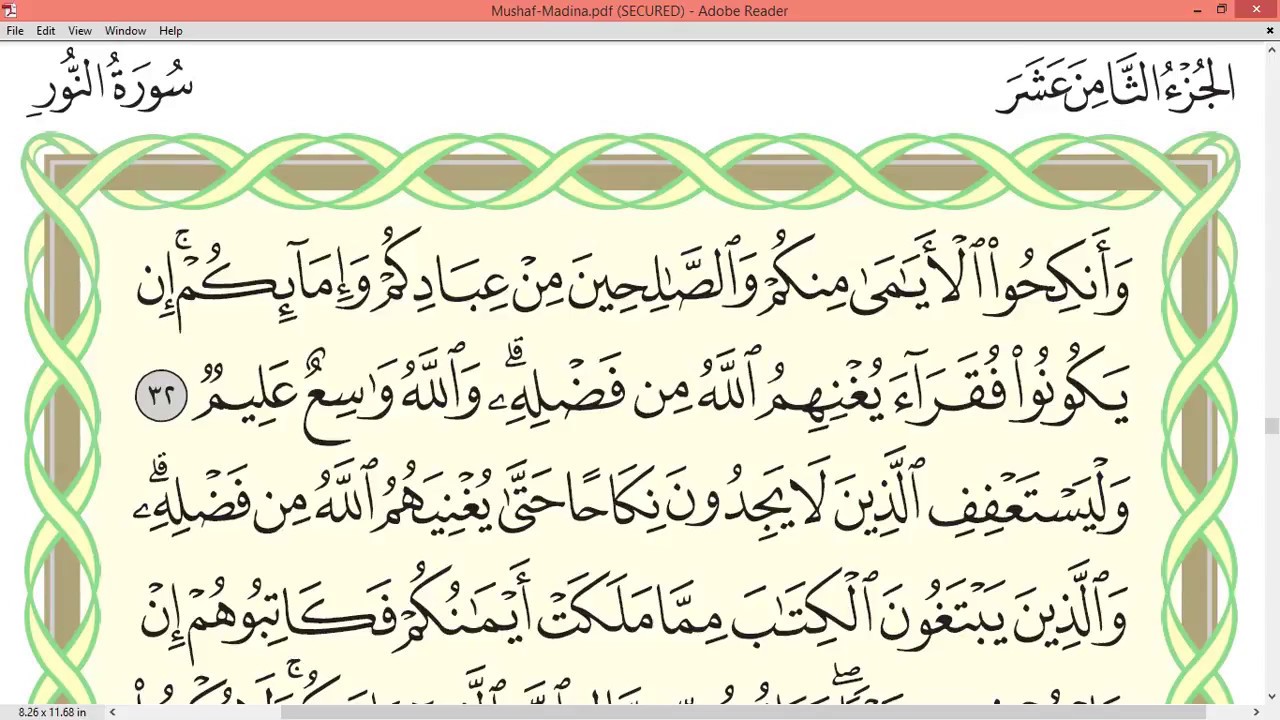 Mushaf-Madina.pdf (SECURED) - Adobe Reader
File Edit View Window Help
الجُزْءُ الثَّامِنَ عَشَرَ
سُورَةُ النُّورِ
وَأَنكِحُوا۟ ٱلْأَيَـٰمَىٰ مِنكُمْ وَٱلصَّـٰلِحِينَ مِنْ عِبَادِكُمْ وَإِمَآئِكُمْ ۚ إِن
يَكُونُوا۟ فُقَرَآءَ يُغْنِهِمُ ٱللَّهُ مِن فَضْلِهِۦ ۗ وَٱللَّهُ وَٰسِعٌ عَلِيمٌ ٣٢
وَلْيَسْتَعْفِفِ ٱلَّذِينَ لَا يَجِدُونَ نِكَاحًا حَتَّىٰ يُغْنِيَهُمُ ٱللَّهُ مِن فَضْلِهِۦ ۗ
وَٱلَّذِينَ يَبْتَغُونَ ٱلْكِتَـٰبَ مِمَّا مَلَكَتْ أَيْمَـٰنُكُمْ فَكَاتِبُوهُمْ إِنْ
8.26 x 11.68 in